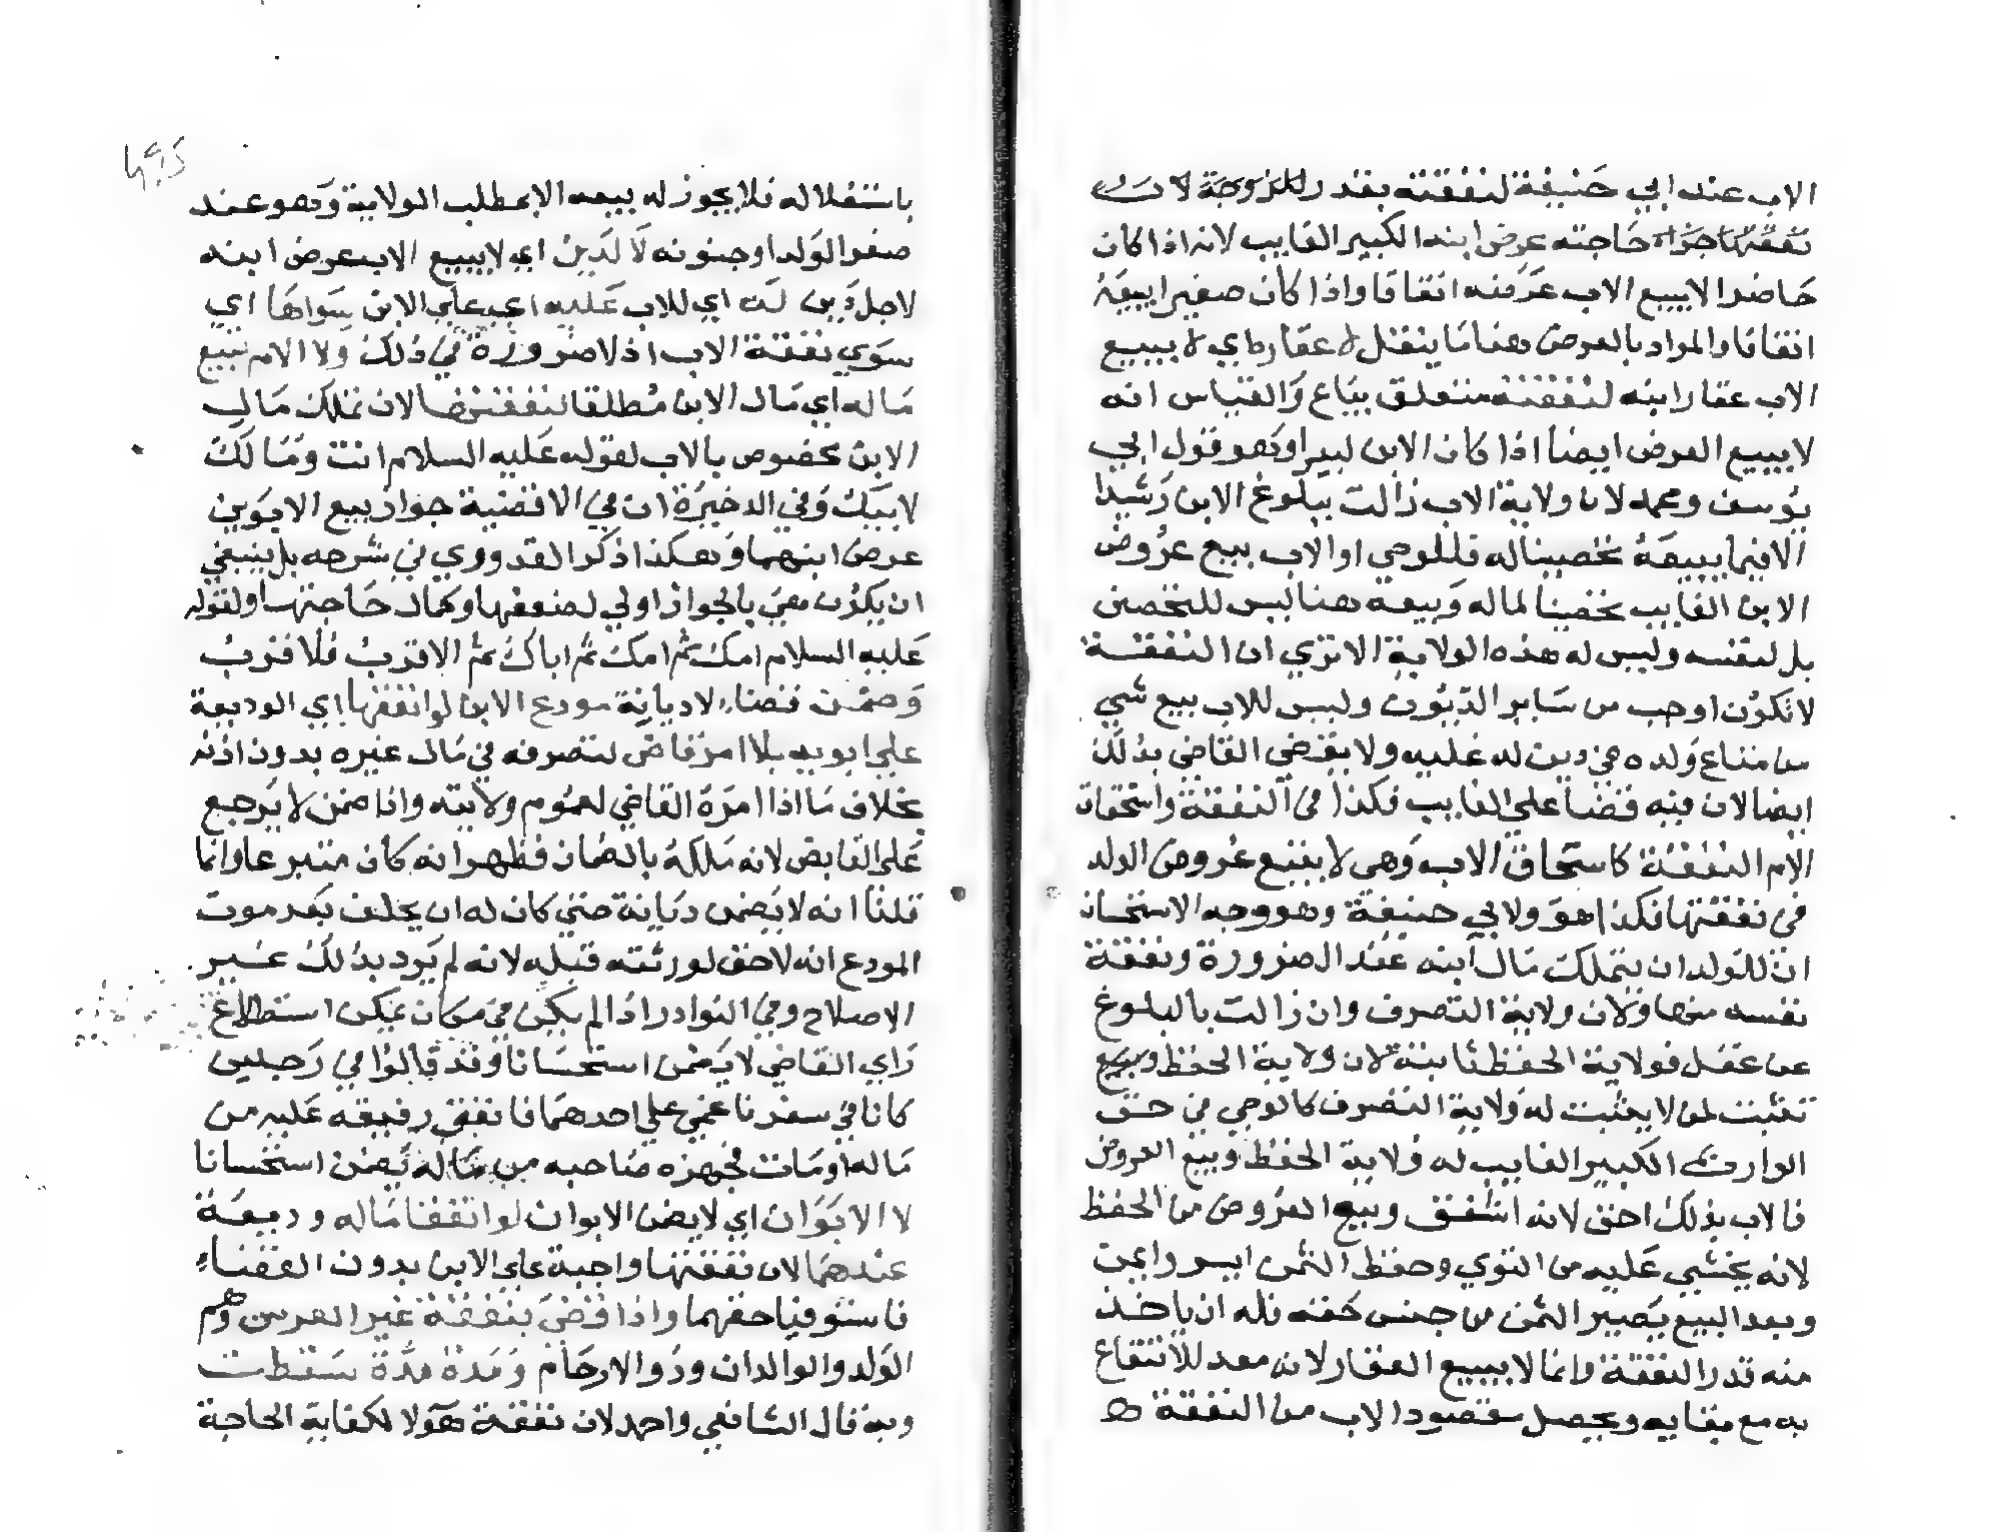 الاب عند ابي حنيفة لنفقته بقدر للزوجة لان
نفقتها جزاء حاجته عرض ابنه الكبير الغايب لانه اذا كان
حاضرا لايبيع الاب عرضه اتفاقا واذا كان صغيرا يبيعه
اتفاقا والمراد بالعرض هنا ما ينقل لا عقاره اي لا يبيع
الاب عقار ابنه لنفقته متعلق بيباع والقياس انه
لا يبيع العرض ايضا اذا كان الابن كبيرا وهو قول ابي
يوسف ومحمد لان ولاية الاب زالت ببلوغ الابن رشيدا
الا فيما يبيعه تحصينا له فللوصي او الاب بيع عروض
الابن الغايب تحصينا لماله وبيعه هنا ليس للتحصن
بل لنفسه وليس له هذه الولاية الا تري ان النفقة
لا تكون اوجب من ساير الديون وليس للاب بيع شي
من متاع ولده في دين له عليه ولا يقضي القاضي بذلك
ايضا لان فيه قضا على الغايب فكذا في النفقة واستحقاق
الام النفقة كاستحقاق الاب وهى لا تبيع عروض الولد
في نفقتها فكذا هو ولابي حنيفة وهو وجه الاستحسان
ان للولد ان يتملك مال ابنه عند الضرورة ونفقة
نفسه منها ولان ولاية التصرف وان زالت بالبلوغ
عن عقل فولاية الحفظ ثابتة لان ولاية الحفظ وبيع
تثبت لمن لا يثبت له ولاية التصرف كالوصي في حق
الوارث الكبير الغايب له ولاية الحفظ وبيع العروض
فالاب بذلك احق لانه اشفق وبيع العروض من الحفظ
لانه يخشي عليه من التوي وحفظ الثمن ايسر وايمن
وبعد البيع يصير الثمن من جنس حقه فله ان ياخذ
منه قدر النفقة وانما لا يبيع العقار لانه معد للانتفاع
به مع بقايه ويحصل مقصود الاب من النفقة
باستغلاله فلا يجوز له بيعه الا بمطلب الولاية وهو عند
صغر الولد او جنونه لا لدين اي لا يبيع الاب عرض ابنه
لاجل دين له اي للاب عليه اي علي الابن سواها اي
سوي نفقة الاب اذ لا ضرورة في ذلك ولا الام تبيع
ماله اي مال الابن مطلقا لنفقتها لان تملك مال
الابن مخصوص بالاب لقوله عليه السلام انت ومالك
لابيك وفي الذخيرة ان في الاقضية جواز بيع الابوين
عرض ابنهما وهكذا ذكر القدوري في شرحه بل ينبغي
ان يكون هي بالجواز اولي لضعفها وكمال حاجتها ولقوله
عليه السلام امك ثم امك ثم اباك ثم الاقرب فلاقرب
وضمن قضاء لا ديانة مودع الابن لو انفقها اي الوديعة
علي ابويه بلا امر قاض لتصرفه في مال غيره بدون اذنه
بخلاف ما اذا امره القاضي لعموم ولايته واذا ضمن لا يرجع
على القابض لانه ملكه بالضمان فظهر انه كان متبرعا وانما
قلنا انه لا يضمن ديانة حتي كان له ان يحلف بعد موت
المودع انه لا حق لورثته قبله لانه لم يرد بذلك غير
الاصلاح وفي النوادر اذا لم يكن في مكان يمكن استطلاع
راي القاضي لا يضمن استحسانا وقد قالوا في رجلين
كانا في سفر فاغمي علي احدهما فانفق رفيقه عليه من
ماله او مات فجهزه صاحبه من ماله يضمن استحسانا
لا الابوان اي لا يضمن الابوان لو انفقا ماله وديعة
عندهما لان نفقتهما واجبة علي الابن بدون القضاء
فاستوفيا حقهما واذا قضى بنفقة غير العرس وهم
الولد والوالدان وذو الارحام ومدة مدة سقطت
وبه قال الشافعي واحمد لان نفقة هولا لكفاية الحاجة